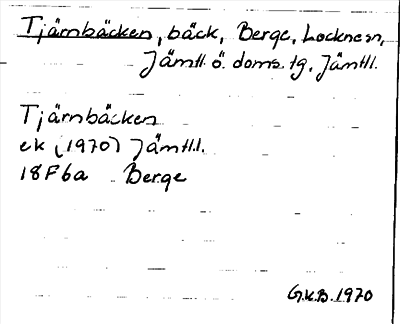 Tjärnbäcken, bäck, Berge, Lockne sn,
Jämtl. ö. doms. tg, Jämtl.
Tjärnbäcken
ek (1970) Jämtl.
18F6a Berge
G.K.B. 1970